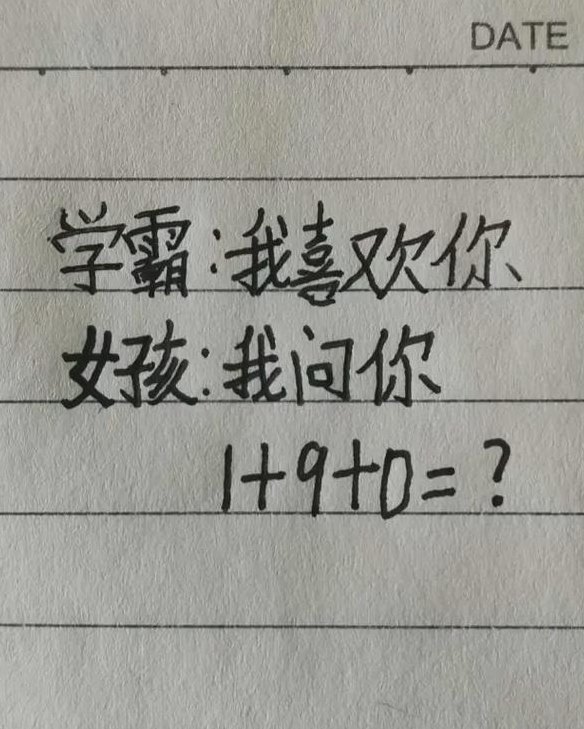 DATE
学霸:我喜欢你
女孩:我问你
1+9+0=?